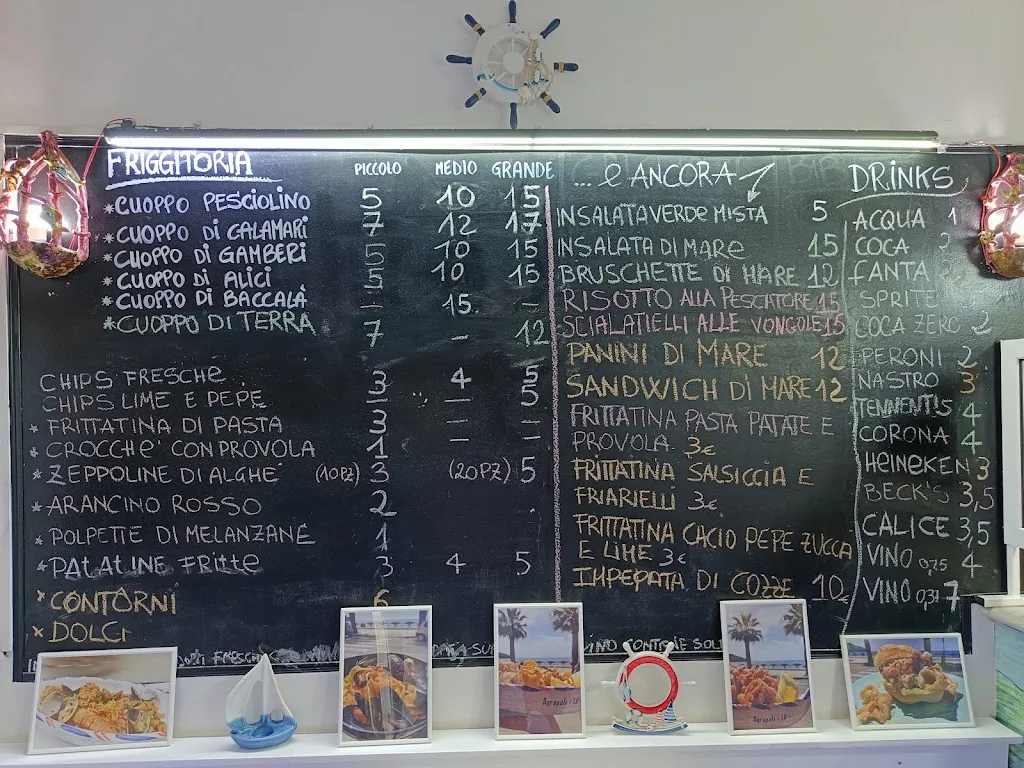 FRIGGITORIA PICCOLO MEDIO GRANDE
*CUOPPO PESCIOLINO 5 10 15
*CUOPPO DI CALAMARI 7 12 17
CUOPPO DI GAMBERI 5 10 15
CUOPPO DI ALICI 5 10 15
CUOPPO DI BACCALÀ - 15 -
*CUOPPO DI TERRA 7 - 12
CHIPS FRESCHE 3 4 5
CHIPS LIME E PEPE 3 - 5
* FRITTATINA DI PASTA 3 - -
* CROCCHE' CON PROVOLA 1 - -
* ZEPPOLINE DI ALGHE (10PZ) 3 (20PZ) 5
* ARANCINO ROSSO 2
* POLPETTE DI MELANZANE 1
* PATATINE FRITTE 3 4 5
x CONTORNI 6
x DOLCI
... e ANCORA
INSALATA VERDE MISTA 5
INSALATA DI MARE 15
BRUSCHETTE DI MARE 12
RISOTTO ALLA PESCATORE 15
SCIALATIELLI ALLE VONGOLE 15
PANINI DI MARE 12
SANDWICH DI MARE 12
FRITTATINA PASTA PATATE E
PROVOLA 3€
FRITTATINA SALSICCIA E
FRIARIELLI 3€
FRITTATINA CACIO PEPE ZUCCA
E LIME 3€
IMPEPATA DI COZZE 10€
DRINKS
ACQUA 1
COCA
FANTA
SPRITE
COCA ZERO 2
PERONI 2
NASTRO 3
TENNENTIS 4
CORONA 4
HEINEKEN 3
BECK'S 3,5
CALICE 3,5
VINO 0,75 4
VINO 0,37 7
Agropoli